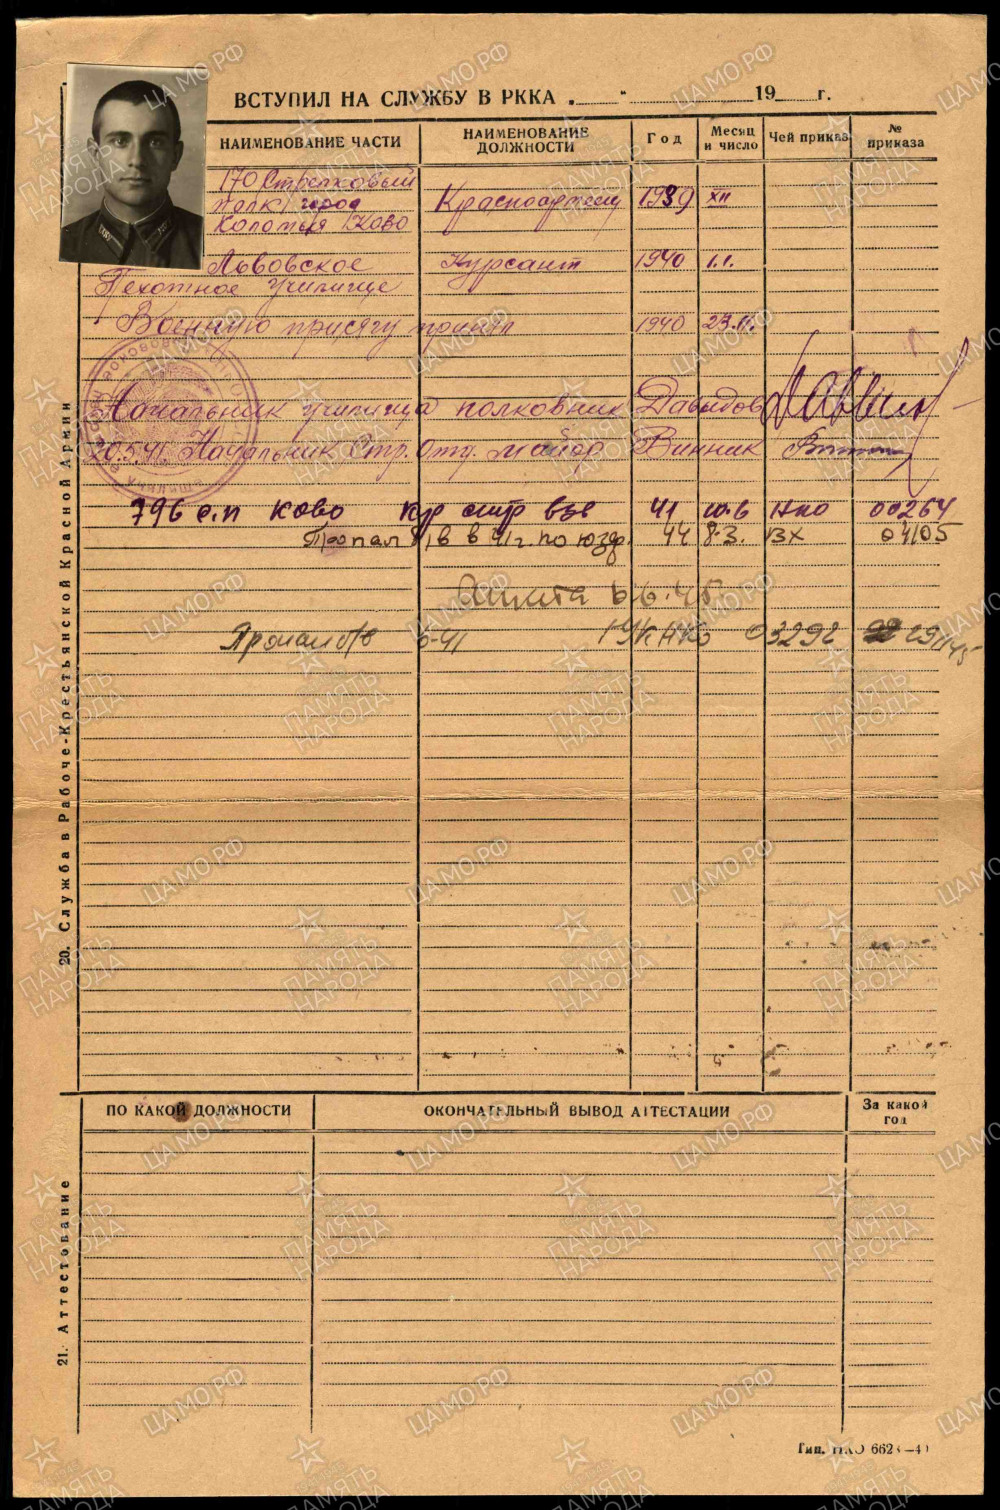 ВСТУПИЛ НА СЛУЖБУ В РККА „ " 19 г.
НАИМЕНОВАНИЕ ЧАСТИ
НАИМЕНОВАНИЕ ДОЛЖНОСТИ
Год
Месяц и число
Чей приказ
№ приказа
170 Стрелковый
полк город Красноармеец 1939 XII
Коломыя КОВО
Львовское Курсант 1940 1.1.
Пехотное училище
Военную присягу принял 1940 23.II.
Начальник училища полковник Давыдов
20.5.41. Начальник Стр. Отд. майор Винник
796 с.п КОВО к-р стр взв 41 10.6 НКО 00264
Пропал б/в в 41 г. по ЮЗФ 44 8.3. ВХ 04105
6.6.45.
Пропал б/в 6-41 ГУК НКО 03292 29
20. Служба в Рабоче-Крестьянской Красной Армии
ПО КАКОЙ ДОЛЖНОСТИ
ОКОНЧАТЕЛЬНЫЙ ВЫВОД АТТЕСТАЦИИ
За какой год
21. Аттестование
Тип. НКО 662
ЦАМО.РФ
ПАМЯТЬ НАРОДА